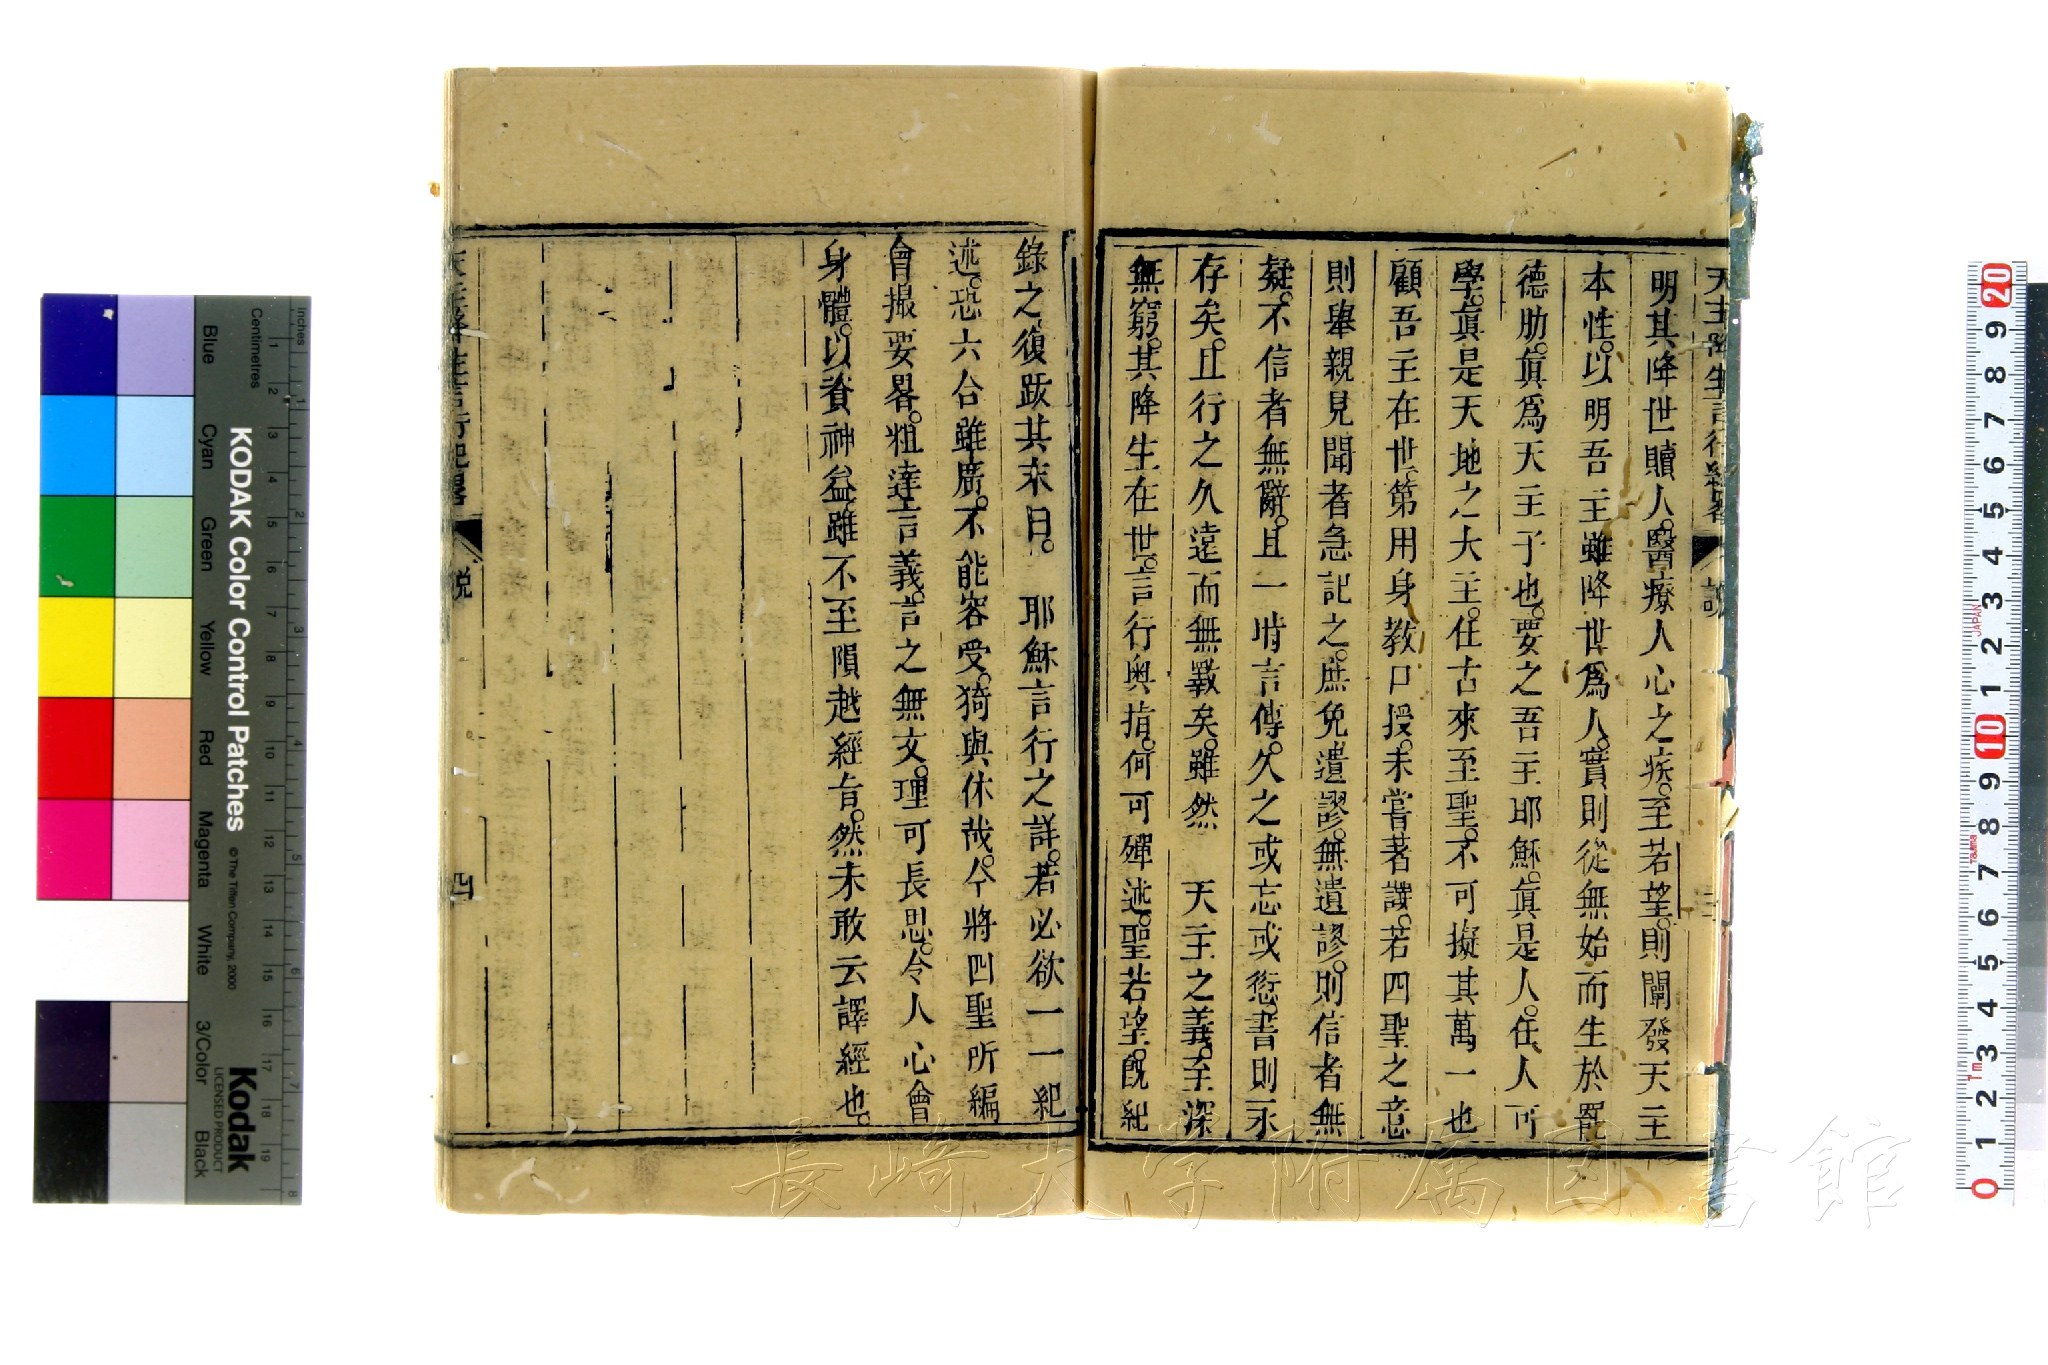 天主降生言行紀畧 說 三
明其降世贖人。醫療人心之疾。至若望。則闡發天主
本性。以明吾主雖降世爲人。實則從無始而生於罷
德肋。眞爲天主子也。要之吾主耶穌。眞是人。在人可
學。眞是天地之大主。在古來至聖。不可擬其萬一也
顧吾主在世。第用身教口授。未嘗著譔。若四聖之意
則舉親見聞者急記之。庶免遺謬。無遺謬。則信者無
疑。不信者無辭。且一時言傳。久之或忘或愆。書則永
存矣。且行之久遠而無斁矣。雖然 天主之義。至深
無窮。其降生在世。言行奧指。何可殫述。聖若望。旣紀
錄之復跋其末曰。 耶穌言行之詳。若必欲一一紀
述。恐六合雖廣。不能容受。猗與休哉。今將四聖所編
會撮要畧。粗達言義。言之無文。理可長思。令人心會
身體。以資神益。雖不至隕越經旨。然未敢云譯經也。
天主降生言行紀畧 說 四
KODAK Color Control Patches
© The Tiffen Company, 2000
Kodak
LICENSED PRODUCT
Inches 1 2 3 4 5 6 7 8
Centimetres 1 2 3 4 5 6 7 8 9 10 11 12 13 14 15 16 17 18 19
Blue Cyan Green Yellow Red Magenta White 3/Color Black
20 9 8 7 6 5 4 3 2 1 10 9 8 7 6 5 4 3 2 1 0
JAPAN
Tajima
1m
長崎大学附属図書館